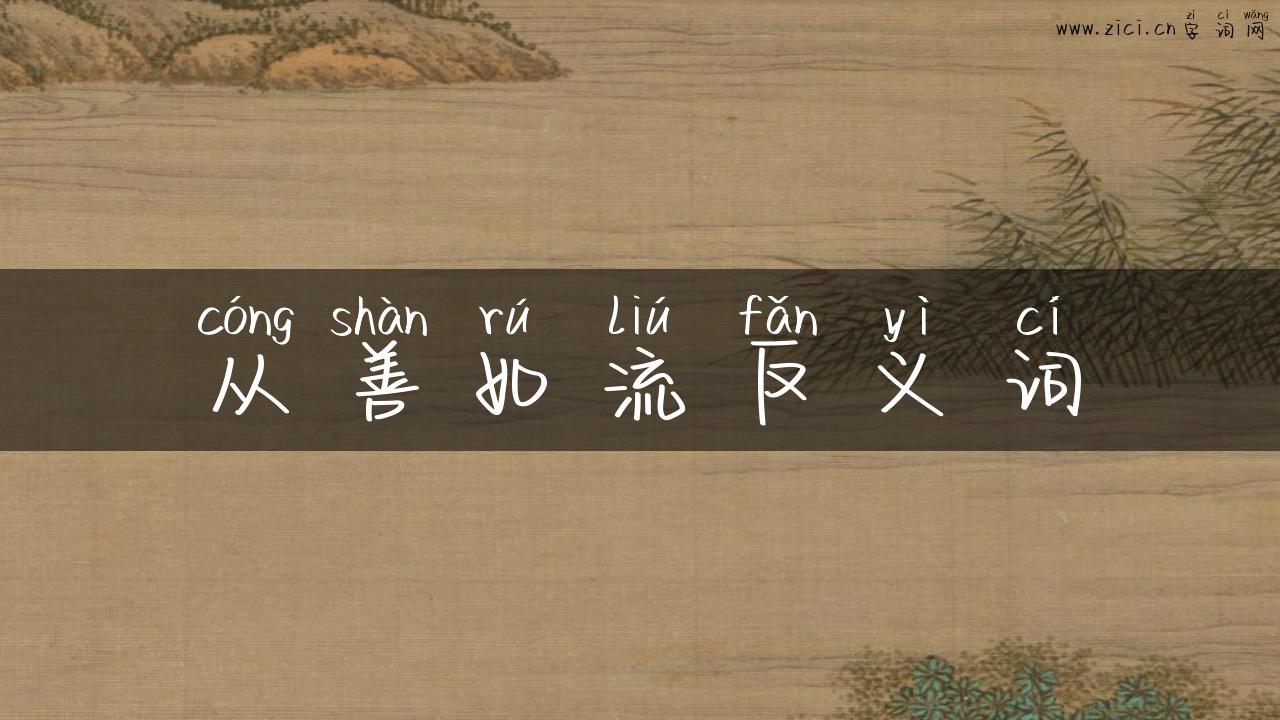 zì cí wǎng
www.zici.cn 字 词 网
cóng shàn rú liú fǎn yì cí
从 善 如 流 反 义 词